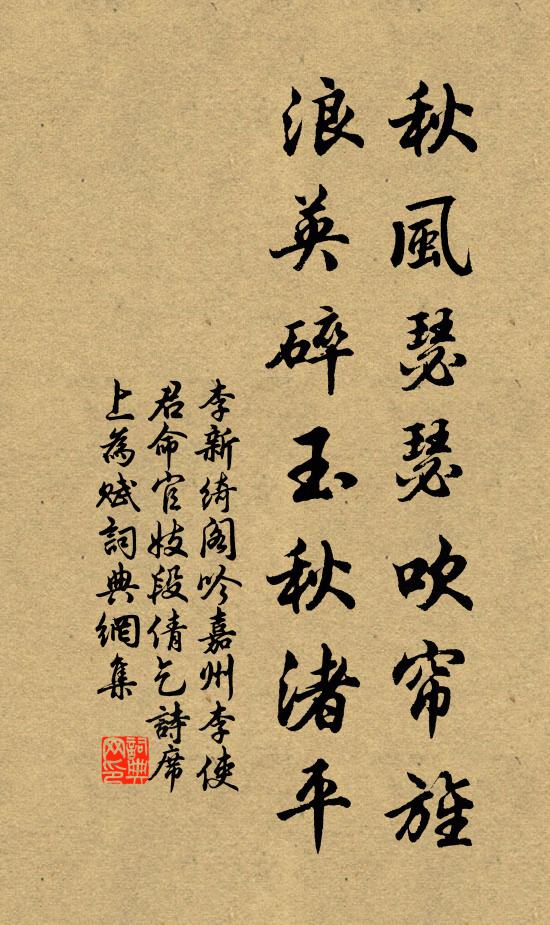 秋風瑟瑟吹帘旌
浪英碎玉秋渚平
李新綺閣吟嘉州李使
君命官妓段倩乞詩席
上為賦詞典網集
詞典
网印